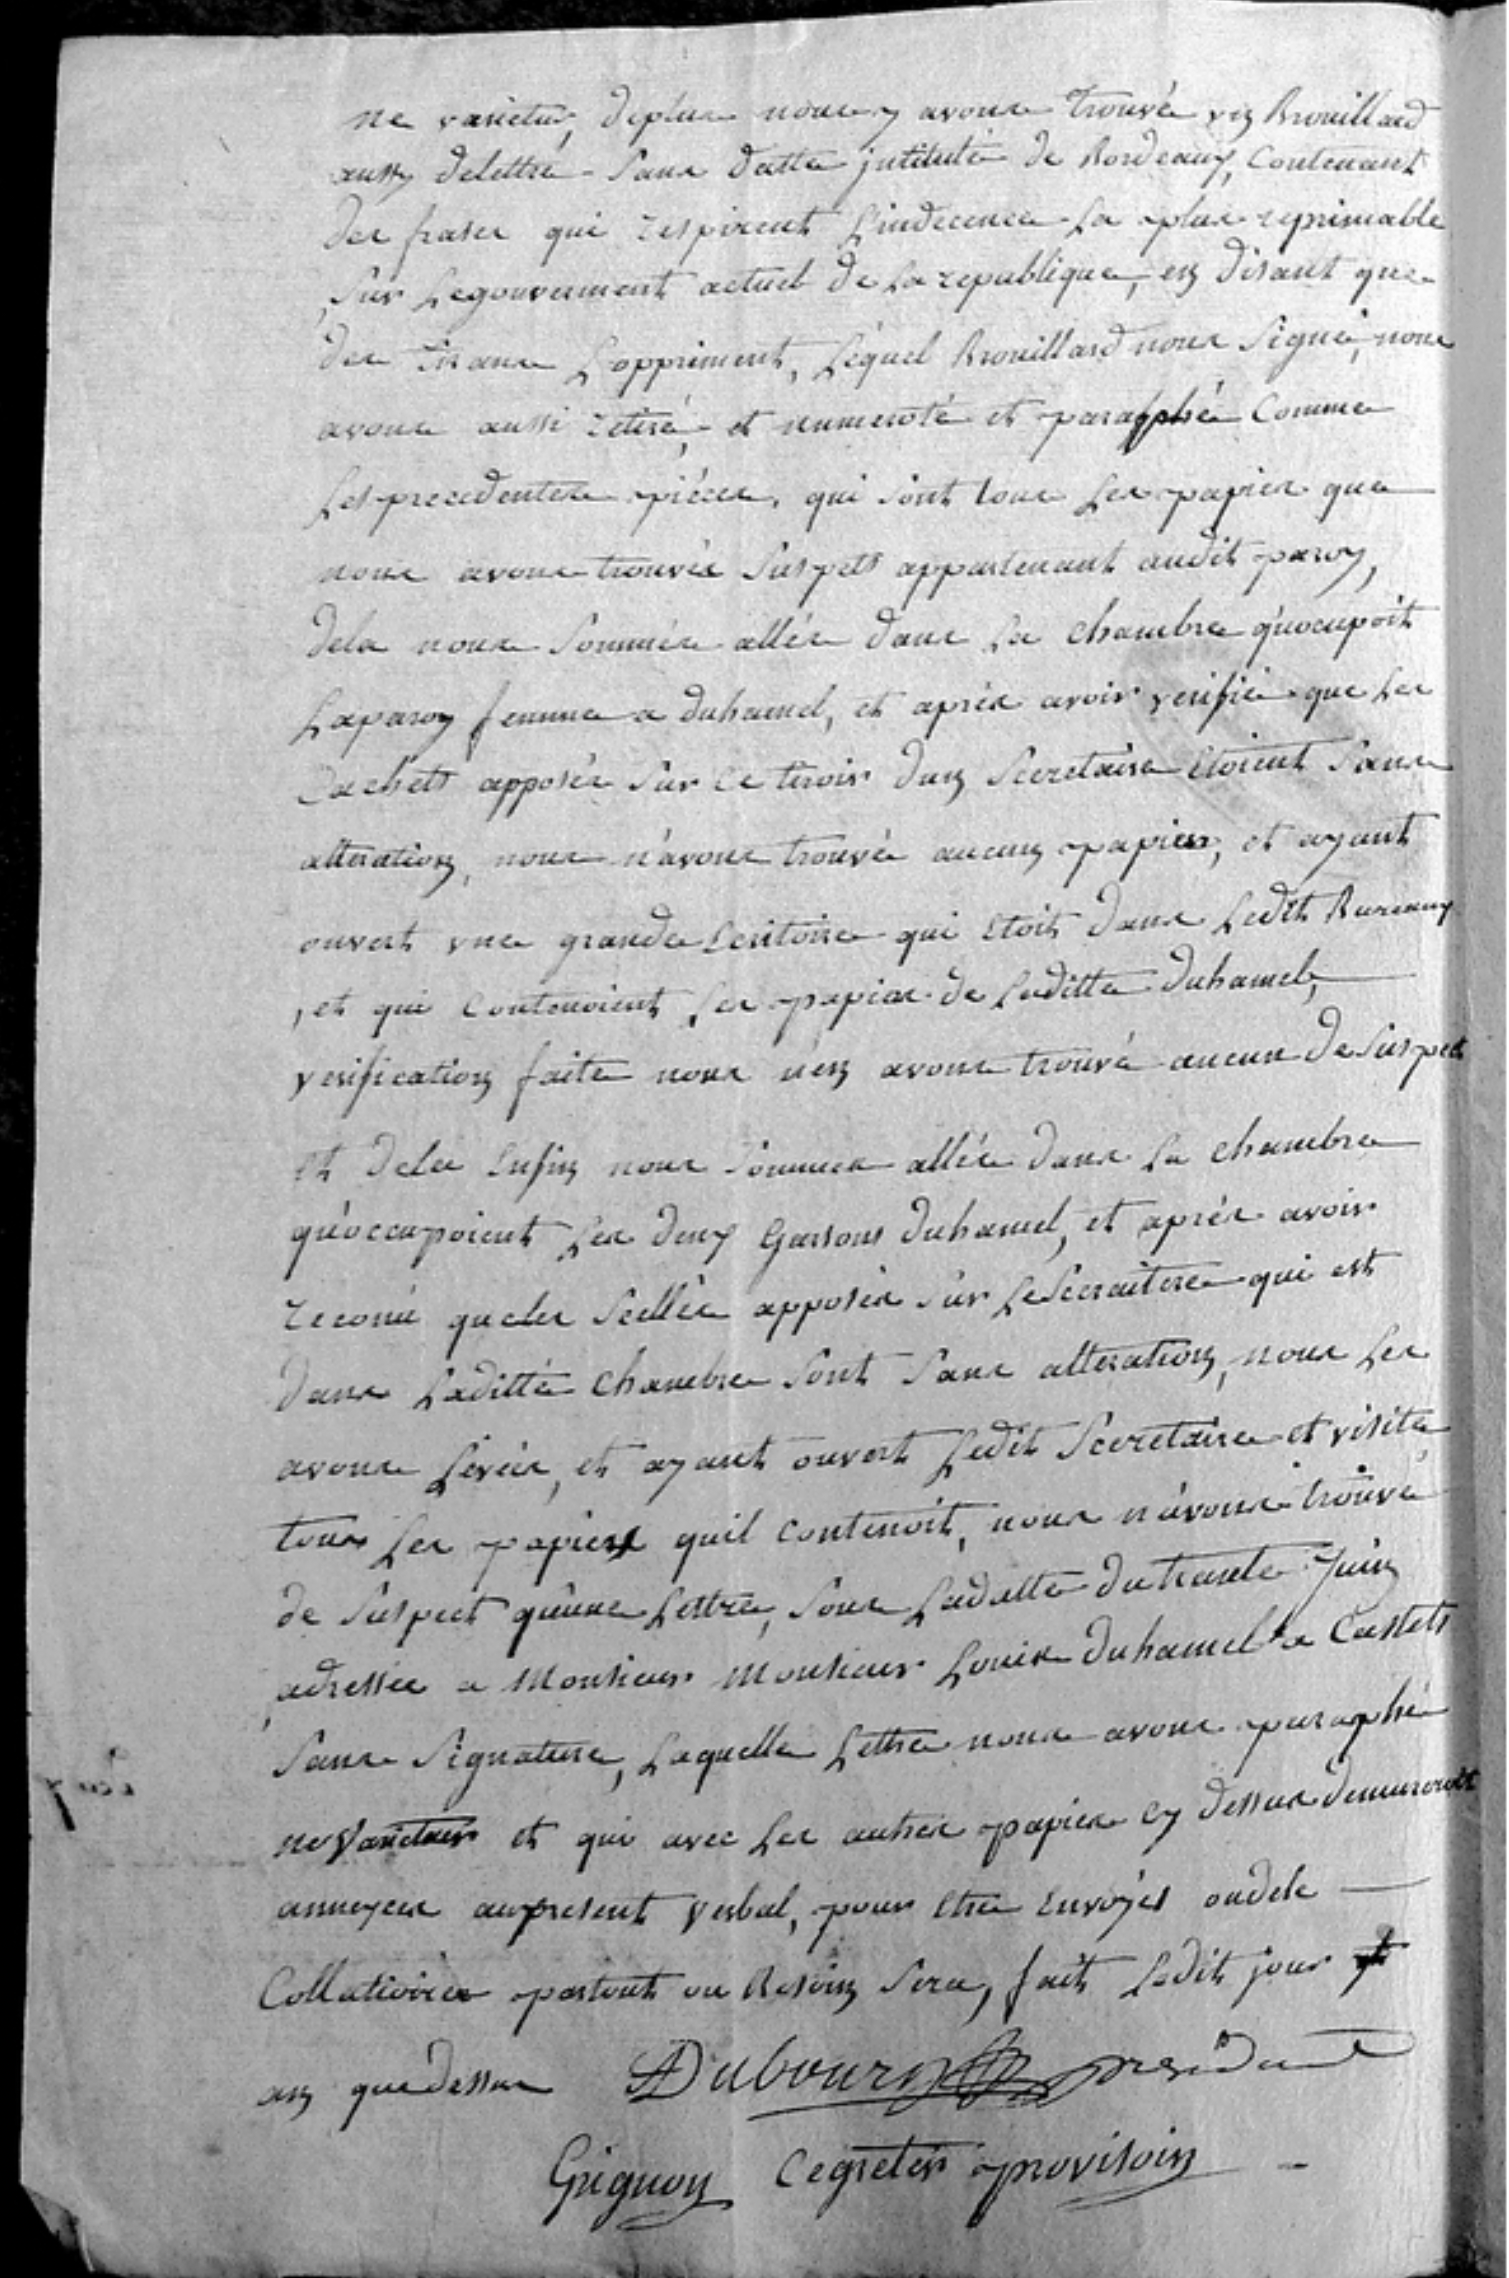 ne varietur, deplus nous y avons trouvé un Brouillard
aussy delettre sans datte jntitulé de Bordeaux, Contenant
des frases qui respirent L'indecence La plus reprimable
sur Legouverment actuel de La republique, en disant que
des tirans L'oppriment, Léquel Brouillard nous Signé, nous
avons aussi retiré, et numeroté et paraphé Comme
Les precedentes piéces, qui sont tous Les papier que
nous avons trouvés suspets appartenant audit paroy,
dela nous sommés allés dans La chambre qu'ocupoit
Laparoy femme a duhamel, et aprés avoir verifié que Les
Cachets apposés sur Le tiroir dun Secretaire Etoient sans
alteration, nous n'avons trouvé aucun papier, et ayant
ouvert vne grande Ecritoire qui Etoit dans Ledit Bureaux
, et qui Contenoient Les papier de Laditte duhamel,
verification faite nous n'en avons trouvé aucun de suspect
Et dela Enfin nous sommes allés dans La chambre
qu'occupoient Les deux Garsons duhamel, et aprés avoir
reconu queles Scellés apposés sur LeSecraitere qui est
dans Laditte chambre sont sans alteration, nous Les
avons Levés, et ayant ouvert Ledit Secretaire et visité
tous Les papiers quil Contenoit, nous n'avons trouvé
de suspect qu'une Lettre, sous Ladatte du trante Juin
adressée a Monsieur Monsieur Louis duhamel a Castets
sans Signature, Laquelle Lettre nous avons paraphé
ne Varietur et qui avec Les autres papier cy dessus demureront
annexés aupresent verbal, pour Etre Envoyés oudele
Collationés partout ou Besoin sera, fait Ledit jour et
an quedessus Dubourg président
Grignon Cegretér provisoir